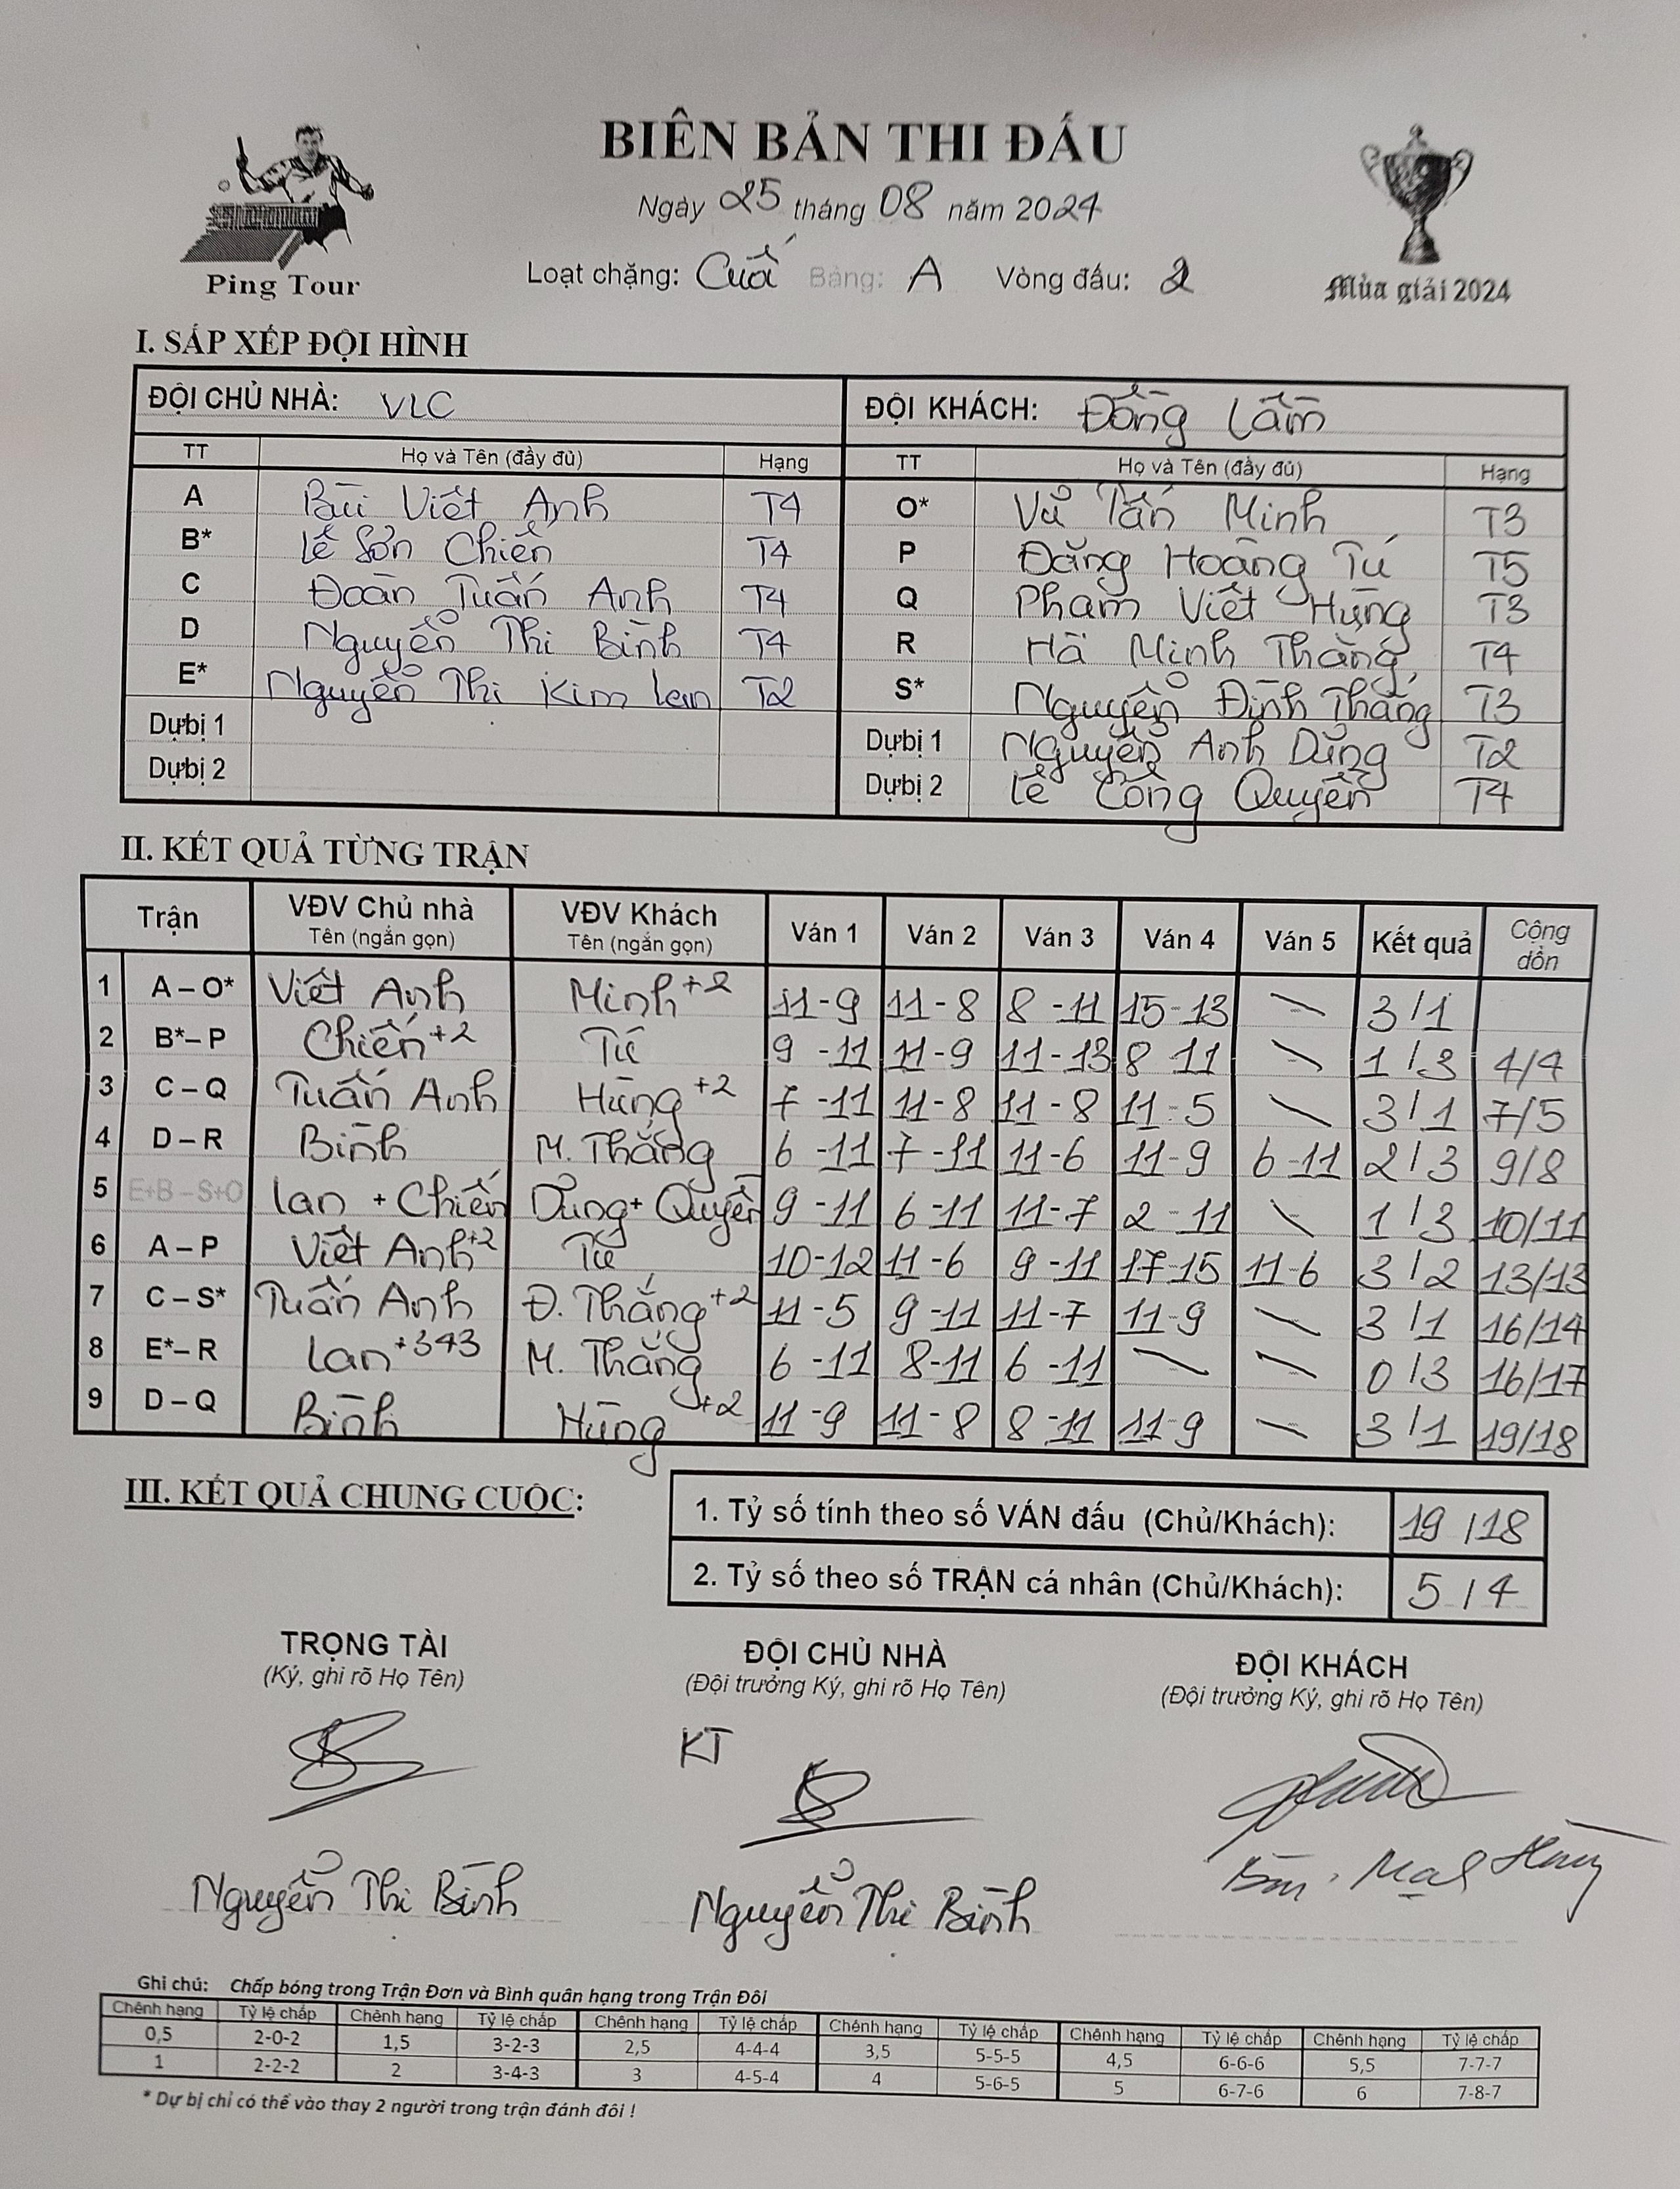 BIÊN BẢN THI ĐẤU
Ngày 25 tháng 08 năm 2024
Loạt chặng: Cuối Bảng: A Vòng đấu: 2
Ping Tour
Mùa giải 2024
I. SẮP XẾP ĐỘI HÌNH
ĐỘI CHỦ NHÀ: VLC ĐỘI KHÁCH: Đồng Lầm
TT Họ và Tên (đầy đủ) Hạng TT Họ và Tên (đầy đủ) Hạng
A Bùi Viết Anh T4 O* Vũ Tấn Minh T3
B* Lê Sơn Chiến T4 P Đặng Hoàng Tú T5
C Đoàn Tuấn Anh T4 Q Phạm Viết Hùng T3
D Nguyễn Thị Bình T4 R Hà Minh Thắng T4
E* Nguyễn Thị Kim Lan T2 S* Nguyễn Đình Thắng T3
Dựbị 1 Dựbị 1 Nguyễn Anh Dũng T2
Dựbị 2 Dựbị 2 Lê Công Quyền T4
II. KẾT QUẢ TỪNG TRẬN
Trận VĐV Chủ nhà VĐV Khách Ván 1 Ván 2 Ván 3 Ván 4 Ván 5 Kết quả Cộng dồn
Tên (ngắn gọn) Tên (ngắn gọn)
1 A – O* Viết Anh Minh +2 11-9 11-8 8-11 15-13 \ 3/1
2 B*– P Chiến +2 Tú 9-11 11-9 11-13 8 11 \ 1/3 4/4
3 C – Q Tuấn Anh Hùng +2 7-11 11-8 11-8 11-5 \ 3/1 7/5
4 D – R Bình M. Thắng 6-11 7-11 11-6 11-9 6-11 2/3 9/8
5 E+B – S+O Lan + Chiến Dũng+ Quyền 9-11 6-11 11-7 2-11 \ 1/3 10/11
6 A – P Viết Anh +2 Tú 10-12 11-6 9-11 17-15 11-6 3/2 13/13
7 C – S* Tuấn Anh Đ. Thắng +2 11-5 9-11 11-7 11-9 \ 3/1 16/14
8 E*– R Lan +343 M. Thắng 6-11 8-11 6-11 \ \ 0/3 16/17
9 D – Q Bình Hùng +2 11-9 11-8 8-11 11-9 \ 3/1 19/18
III. KẾT QUẢ CHUNG CUỘC:
1. Tỷ số tính theo số VÁN đấu (Chủ/Khách): 19/18
2. Tỷ số theo số TRẬN cá nhân (Chủ/Khách): 5/4
TRỌNG TÀI ĐỘI CHỦ NHÀ ĐỘI KHÁCH
(Ký, ghi rõ Họ Tên) (Đội trưởng Ký, ghi rõ Họ Tên) (Đội trưởng Ký, ghi rõ Họ Tên)
KT
Nguyễn Thị Bình Nguyễn Thị Bình
Ghi chú: Chấp bóng trong Trận Đơn và Bình quân hạng trong Trận Đôi
Chênh hạng Tỷ lệ chấp Chênh hạng Tỷ lệ chấp Chênh hạng Tỷ lệ chấp Chênh hạng Tỷ lệ chấp Chênh hạng Tỷ lệ chấp Chênh hạng Tỷ lệ chấp
0,5 2-0-2 1,5 3-2-3 2,5 4-4-4 3,5 5-5-5 4,5 6-6-6 5,5 7-7-7
1 2-2-2 2 3-4-3 3 4-5-4 4 5-6-5 5 6-7-6 6 7-8-7
* Dự bị chỉ có thể vào thay 2 người trong trận đánh đôi !